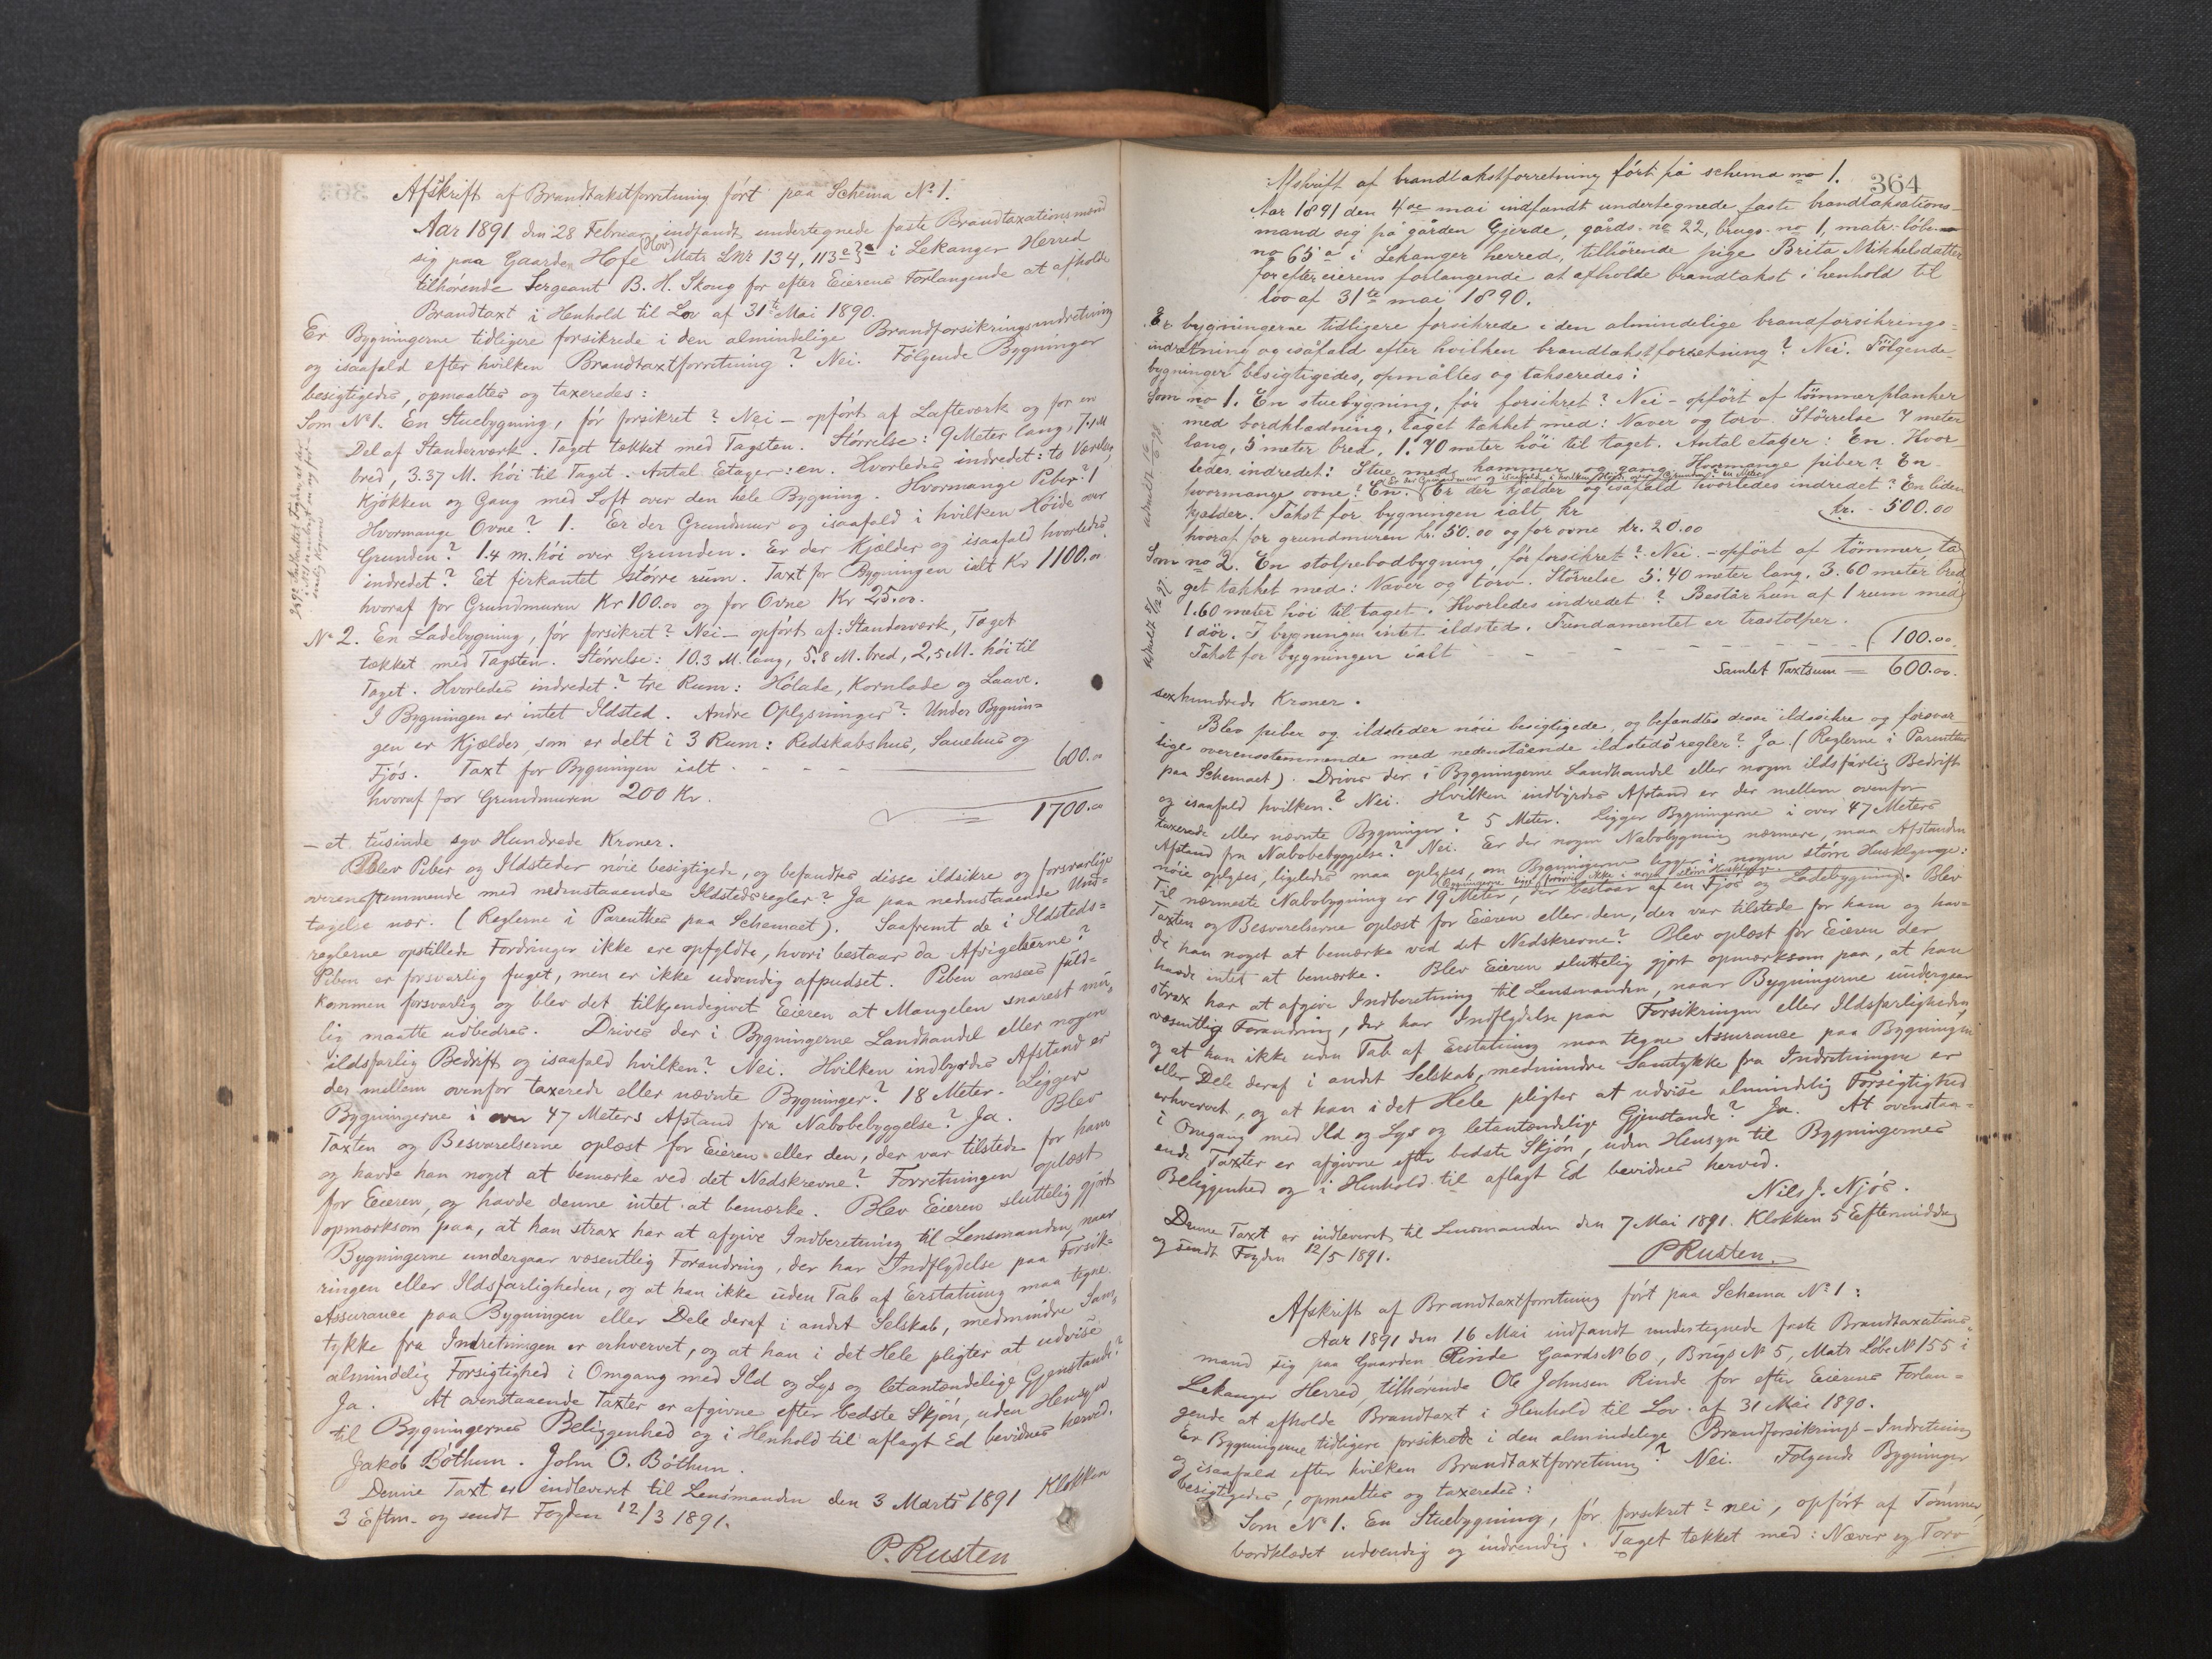 Afskrift af Brandtakstforretning ført paa Schema No 1.
Aar 1891 den 28 Februar indfandt undertegnede faste Brandtaxationsmænd
sig paa Gaarden Hofe (Hov) Matr LNr 134, 113 i Lekanger Herred
tilhørende Sergeant B. H. Skoug for efter Eierens Forlangende at afholde
Brandtaxt i Henhold til Lov af 31te Mai 1890.
Er Bygningerne tidligere forsikrede i den almindelige Brandforsikringsindretning
og isaafald efter hvilken Brandtaxtforretning? Nei. Følgende Bygninger
besigtigedes, opmaaltes og taxeredes:
Som No 1. En Stuebygning, før forsikret? Nei – opført af Lafteværk og for en
Del af Standerværk. Taget tækket med Tagsten. Størrelse: 9 Meter lang, 7.1 M
bred, 3.37 M. høi til Taget. Antal Etager: en. Hvorledes indredet: to Værelser
Kjøkken og Gang med Loft over den hele Bygning. Hvormange Piber? 1
Hvormange Ovne? 1. Er der Grundmur og isaafald i hvilken Høide over
Grunden? 1.4 m. høi over Grunden. Er der Kjælder og isaafald hvorledes
indredet? Et firkantet større rum. Taxt for Bygningen ialt Kr 1100.00
hvoraf for Grundmuren Kr 100.00 og for Ovne Kr 25.00.
No 2. En Ladebygning, før forsikret? Nei – opført af: Standerværk, Taget
tækket med Tagsten. Størrelse: 10.3 M. lang, 5.8 M. bred, 2,5 M. høi til
Taget. Hvorledes indredet? tre Rum: Hølade, Kornlade og Laave.
I Bygningen er intet Ildsted. Andre Oplysninger? Under Bygnin=
gen er Kjælder, som er delt i 3 Rum: Redskabshus, Sauehus og
Fjøs. Taxt for Bygningen ialt - - - 600.00
hvoraf for Grundmuren 200 Kr.
= 1700.00
– et tusinde syv Hundrede Kroner.
Blev Piber og Ildsteder nøie besigtigede, og befandtes disse ildsikre og forsvarlige
overensstemmende med nedenstaaende Ildstedsregler? Ja paa nedenstaaende Und=
tagelse nær. (Reglerne i Parenthes paa Schemaet). Saafremt de i Ildsteds=
reglerne opstillede Fordringer ikke ere opfyldte, hvori bestaar da Afvigelserne?
Piben er forsvarlig fuget, men er ikke udvendig afpudset. Piben ansees fuld=
kommen forsvarlig og blev det tilkjendegivet Eieren at Mangelen snarest mu=
lig maatte udbedres. Drives der i Bygningerne Landhandel eller nogen
ildsfarlig Bedrift og isaafald hvilken? Nei. Hvilken indbyrdes Afstand er
der mellem ovenfor taxerede eller nævnte Bygninger? 18 Meter. Ligger
Bygningerne i over 47 Meters Afstand fra Nabobebyggelse? Ja. Blev
Taxten og Besvarelserne oplæst for Eieren eller den, der var tilstede for ham
og havde han noget at bemærke ved det Nedskrevne? Forretningen oplæst
for Eieren, og havde denne intet at bemærke. Blev Eieren sluttelig gjort
opmærksom paa, at han strax har at afgive Indberetning til Lensmanden, naar
Bygningerne undergaar væsentlig Forandring, der har Indflydelse paa Forsik=
ringen eller Ildsfarligheden, og at han ikke uden Tab af Erstatning maa tegne
Assurance paa Bygningen eller Dele deraf i andet Selskab, medmindre Sam=
tykke fra Indretningen er erhvervet, og at han i det Hele pligter at udvise
almindelig Forsigtighed i Omgang med Ild og Lys og letantændelige Gjenstande?
Ja. At ovenstaaende Taxter er afgivne efter bedste Skjøn, uden Hensyn
til Bygningernes Beliggenhed og i Henhold til aflagt Ed bevidnes herved.
Jakob Bøthun. John O. Bøthun.
Denne Taxt er indleveret til Lensmanden den 3 Marts 1891 Klokken
3 Eftm. og sendt Fogden 12/3 1891.
P. Rusten
364
Afskrift af brandtakstforretning ført på schema no 1.
Aar 1891 den 4de mai indfandt undertegnede faste brandtaksations-
mand sig på gården Gjerde, gårds-no 22, brugs-no 1, matr-løbe-
no 65a i Lekanger herred, tilhørende pige Brita Mikkelsdatter
for efter eierens forlangende at afholde brandtakst i henhold til
lov af 31te mai 1890.
Er bygningerne tidligere forsikrede i den almindelige brandforsikrings-
indretning og isåfald efter hvilken brandtakstforretning? Nei. Følgende
bygninger besigtigedes, opmåltes og takseredes:
Som no 1. En stuebygning, før forsikret? Nei – opført af tømmerplanker
med bordklædning, Taget tækket med: Næver og torv. Størrelse 7 meter
lang, 5 meter bred, 1.70 meter høi til taget. Antal etager: En. Hvor-
ledes indredet: Stue med kammer og gang. Hvormange piber? En
(Er der Grundmur og isaafald i hvilken Høide over Grunden?
hvormange ovne? En. Er der kjælder og isåfald hvorledes indredet? En liden
kjælder. Takst for bygningen ialt kr kr. - 500.00
hvoraf for grundmuren kr. 50.00 og for ovne kr. 20.00
Som no 2. En stolpebodbygning, før forsikret? Nei. – opført af tømmer, ta
get tækket med: Næver og torv. Størrelse 5.40 meter lang, 3.60 meter bred,
1.60 meter høi til taget. Hvorledes indredet? Består kun af 1 rum med
1 dør. I bygningen intet ildsted. Fundamentet er træstolper.
Takst for bygningen ialt - - - 100.00
Samlet Taxtsum = 600.00.
sexhundrede Kroner.
Blev piber og ildsteder nøie besigtigede, og befandtes disse ildssikre og forsvar-
lige overensstemmende med nedenstående ildstedsregler? Ja. (Reglerne i Parenthes
paa Schemaet). Drives der i Bygningerne Landhandel eller nogen ildsfarlig Bedrift
og isaafald hvilken? Nei. Hvilken indbyrdes Afstand er der mellem ovenfor
taxerede eller nævnte Bygninger? 5 Meter. Ligger Bygningerne i over 47 Meters
Afstand fra Nabobebyggelse? Nei. Er der nogen Nabobygning nærmere, maa Afstanden
nøie oplyses, ligeledes maa oplyses, om Bygningerne ligger i nogen større Husklynge:
(Bygningerne ligger forøvrig ikke i nogen større Husklynge.
Til nærmeste Nabobygning er 19 Meter, der bestaar af en Fjøs og Ladebygning. Blev
Taxten og Besvarelserne oplæst for Eieren eller den, der var tilstede for ham og hav=
de han noget at bemærke ved det Nedskrevne? Blev oplæst for Eieren der
havde intet at bemærke. Blev Eieren sluttelig gjort opmærksom paa, at han
strax har at afgive Indberetning til Lensmanden, naar Bygningerne undergaar
væsentlig Forandring, der har Indflydelse paa Forsikringen eller Ildsfarligheden,
og at han ikke uden Tab af Erstatning maa tegne Assurance paa Bygningen
eller Dele deraf i andet Selskab, medmindre Samtykke fra Indretningen er
erhvervet, og at han i det Hele pligter at udvise almindelig Forsigtighed
i Omgang med Ild og Lys og letantændelige Gjenstande? Ja. At ovenstaa=
ende Taxter er afgivne efter bedste Skjøn, uden Hensyn til Bygningernes
Beliggenhed og i Henhold til aflagt Ed bevidnes herved.
Nils J. Njøs.
Denne Taxt er indleveret til Lensmanden den 7 Mai 1891. Klokken 5 Eftermiddag
og sendt Fogden 12/5 1891.
P Rusten.
Afskrift af Brandtaxtforretning ført paa Schema No 1:
Aar 1891 den 16 Mai indfandt undertegnede faste Brandtaxations=
mand sig paa Gaarden Rinde Gaards No 60, Brugs No 5, Matr Løbe No 155 i
Lekanger Herred, tilhørende Ole Johnsen Rinde for efter Eierens Forlan=
gende at afholde Brandtaxt i Henhold til Lov af 31 Mai 1890.
Er Bygningerne tidligere forsikrede i den almindelige Brandforsikrings-Indretning
og isaafald efter hvilken Brandtaxtforretning? Nei. Følgende Bygninger
besigtigedes, opmaaltes og taxeredes:
Som No 1. En Stuebygning, før forsikret? nei, opført af Tømmer,
bordklædet udvendig og indvendig. Taget tækket med: Næver og Torv